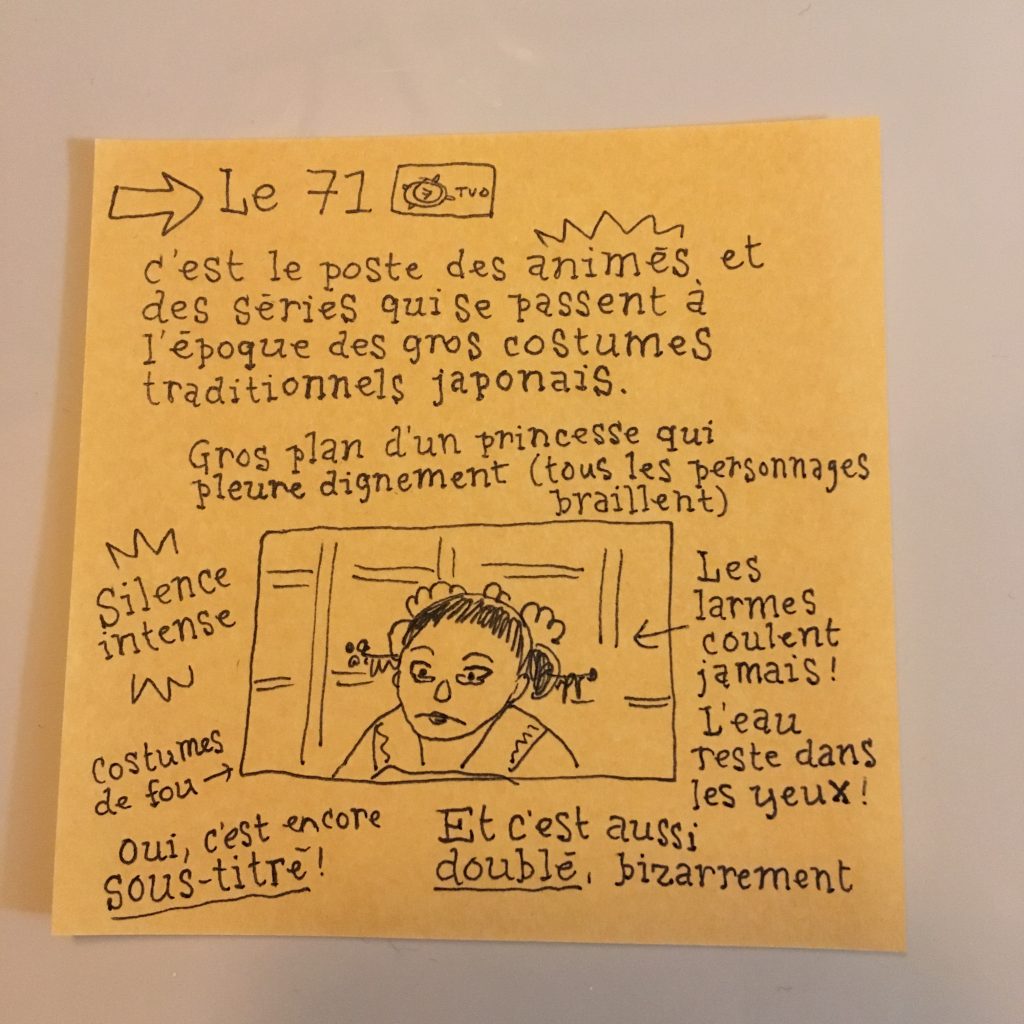 Le 71
TVO
c'est le poste des animés et
des séries qui se passent à
l'époque des gros costumes
traditionnels japonais.
Gros plan d'un princesse qui
pleure dignement (tous les personnages
braillent)
Silence
intense
Les
larmes
coulent
jamais!
L'eau
reste dans
les yeux!
costumes
de fou
Oui, c'est encore
sous-titré!
Et c'est aussi
doublé, bizarrement